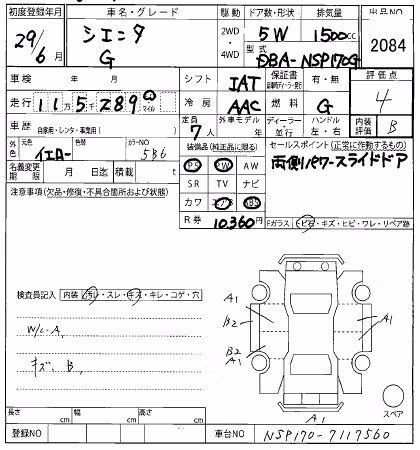 初度登録年月 車名・グレード 駆動 ドア数・形状 排気量 出品NO
29/6月 シエンタ G 2WD・4WD 5W 1500cc 2084
型式 DBA-NSP170G
車検 年 月 シフト IAT 保証書 有・無 評価点
走行 11万5289 km マイル 冷房 AAC 燃料 G 4
車歴 自家用・レンタ・事業用( ) 定員 7人 外車モデル 年 ディーラー・並行 ハンドル 左・右 内装評価 B
外色 元色 イエロー 色替 カラーNO 5B6
装備品(純正品に限る) セールスポイント(正常に作動するもの)
PS PW AW 両側パワースライドドア
名義変更期限 月 日迄 積載 t SR TV ナビ
注意事項(欠品・修復・不具合箇所および状態) カワ エアB ABS
R券 10,360円 Fガラス(トビ石・キズ・ヒビ・ワレ・リペア跡
検査員記入 内装(汚レ・スレ・キズ・キレ・コゲ・穴
A1 A1
B2 A1
W/C・A,
B2
A1
キズ・B,
スペア
A1
長さ cm 幅 cm 高さ cm
登録NO 車台NO NSP170-7117560